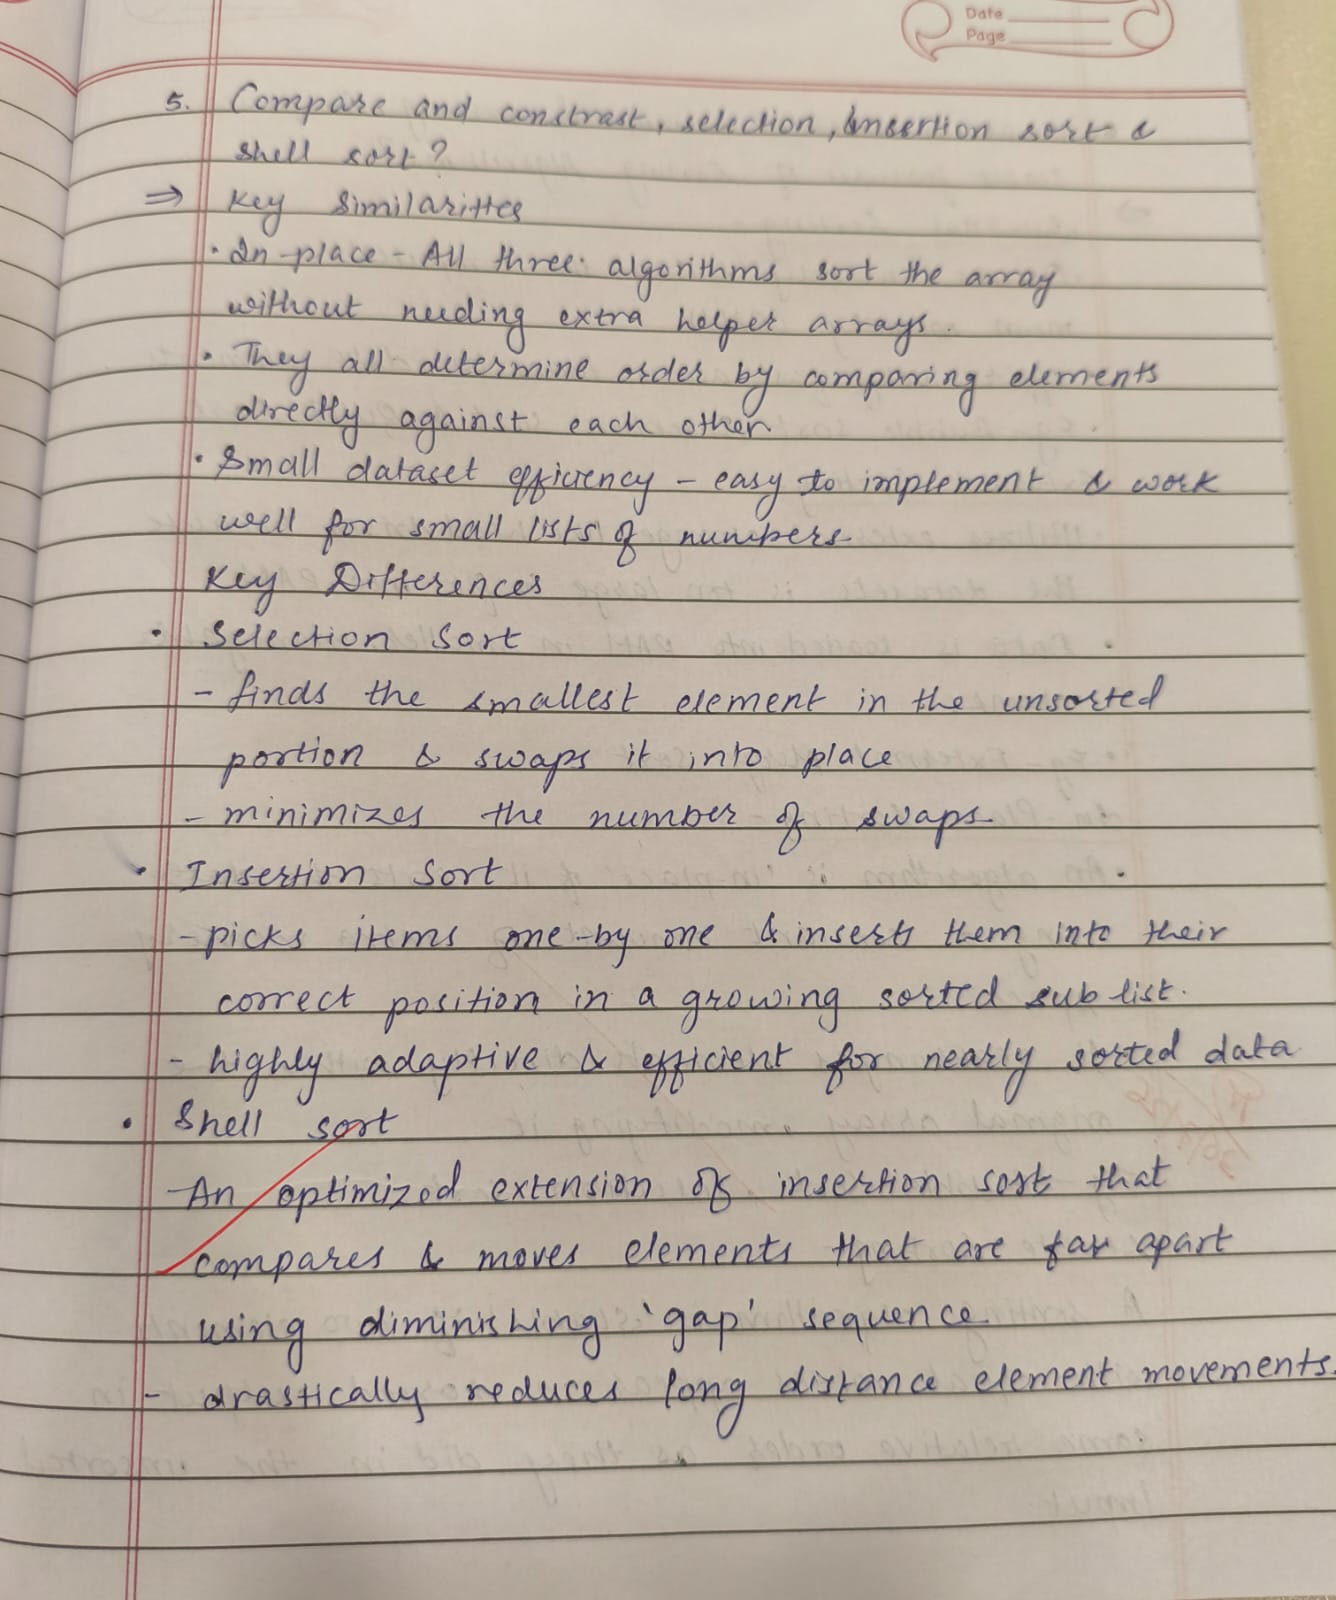 Date
Page
5. Compare and constrast, selection, insertion sort &
shell sort?
⇒ Key Similarities
· In-place - All three algorithms sort the array
without needing extra helper arrays.
· They all determine order by comparing elements
directly against each other.
· Small dataset efficiency - easy to implement & work
well for small lists of numbers.
Key Differences
· Selection Sort
- finds the smallest element in the unsorted
portion & swaps it into place
- minimizes the number of swaps.
· Insertion Sort
- picks items one-by one & inserts them into their
correct position in a growing sorted sub list.
- highly adaptive & efficient for nearly sorted data
· Shell sort
- An optimized extension of insertion sort that
compares & moves elements that are far apart
using diminishing 'gap' sequence.
- drastically reduces long distance element movements.